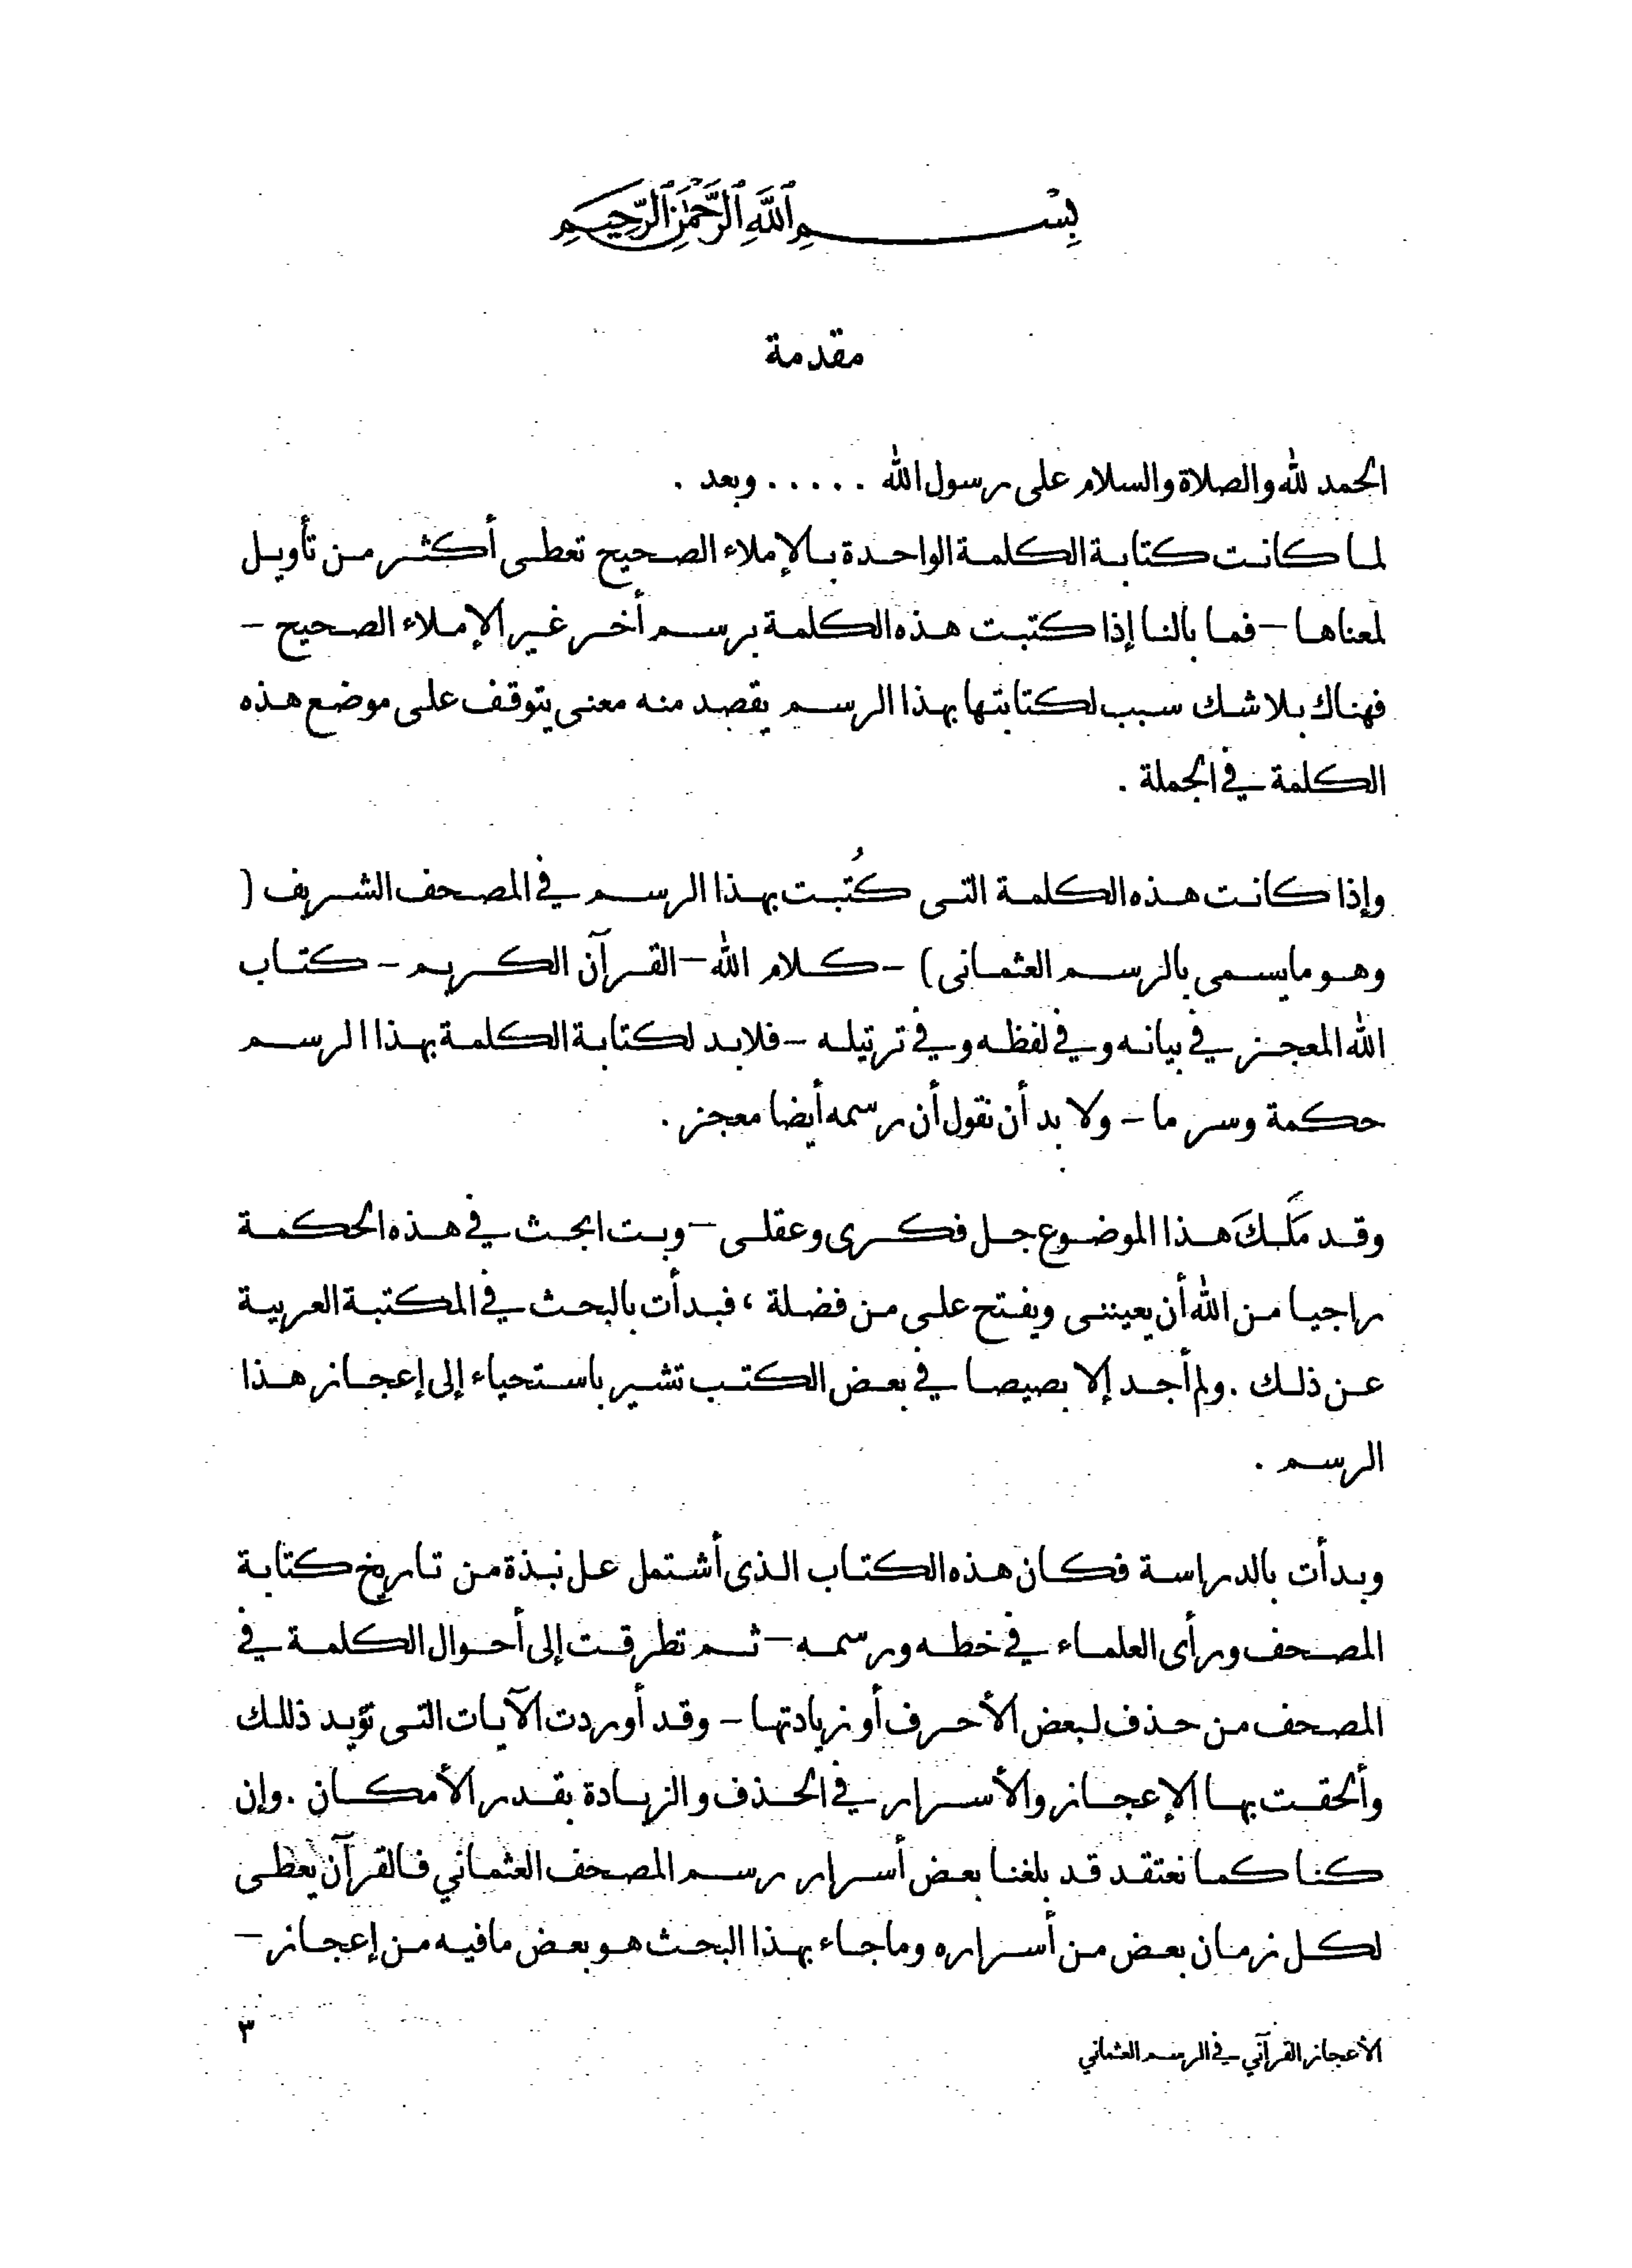 بِسْمِ ٱللَّهِ ٱلرَّحْمَٰنِ ٱلرَّحِيمِ
مقدمة
الحمد لله والصلاة والسلام على رسول الله . . . . . وبعد .
لما كانت كتابة الكلمة الواحدة بالإملاء الصحيح تعطى أكثر من تأويل
لمعناها – فما بالنا إذا كتبت هذه الكلمة برسم أخر غير الإملاء الصحيح –
فهناك بلا شك سبب لكتابتها بهذا الرسم يقصد منه معنى يتوقف على موضع هذه
الكلمة في الجملة .
وإذا كانت هذه الكلمة التى كُتبت بهذا الرسم في المصحف الشريف (
وهو ما يسمى بالرسم العثمانى) – كلام الله – القرآن الكريم – كتاب
الله المعجز في بيانه وفي لفظه وفي ترتيله – فلابد لكتابة الكلمة بهذا الرسم
حكمة وسر ما – ولا بد أن نقول أن رسمه أيضا معجز .
وقد مَلَكَ هذا الموضوع جل فكرى وعقلى – وبت ابحث في هذه الحكمة
راجيا من الله أن يعيننى ويفتح على من فضلة ، فبدأت بالبحث في المكتبة العربية
عن ذلك . ولم أجد إلا بصيصا في بعض الكتب تشير باستحياء إلى إعجاز هذا
الرسم .
وبدأت بالدراسة فكان هذه الكتاب الذى أشتمل عل نبذة من تاريخ كتابة
المصحف ورأى العلماء في خطه ورسمه – ثم تطرقت إلى أحوال الكلمة في
المصحف من حذف لبعض الأحرف أو زيادتها – وقد أوردت الآيات التى تؤيد ذللك
وألحقت بها الإعجاز والأسرار في الحذف والزيادة بقدر الأمكان . وإن
كنا كما نعتقد قد بلغنا بعض أسرار رسم المصحف العثماني فالقرآن يعطى
لكل زمان بعض من أسراره وما جاء بهذا البحث هو بعض مافيه من إعجاز –
٣
الأعجاز القرآني في الرسم العثماني